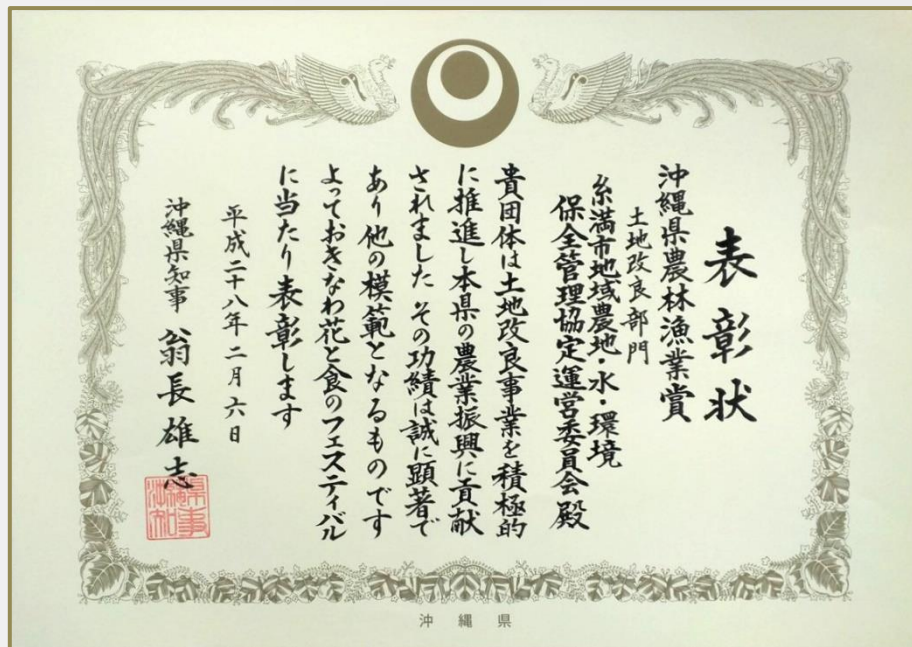 表彰状
沖縄県農林漁業賞
土地改良部門
糸満市地域農地・水・環境
保全管理協定運営委員会殿
貴団体は土地改良事業を積極的
に推進し本県の農業振興に貢献
されました その功績は誠に顕著で
あり他の模範となるものです
よっておきなわ花と食のフェスティバル
に当たり表彰します
平成二十八年二月六日
沖縄県知事 翁長雄志
沖縄県